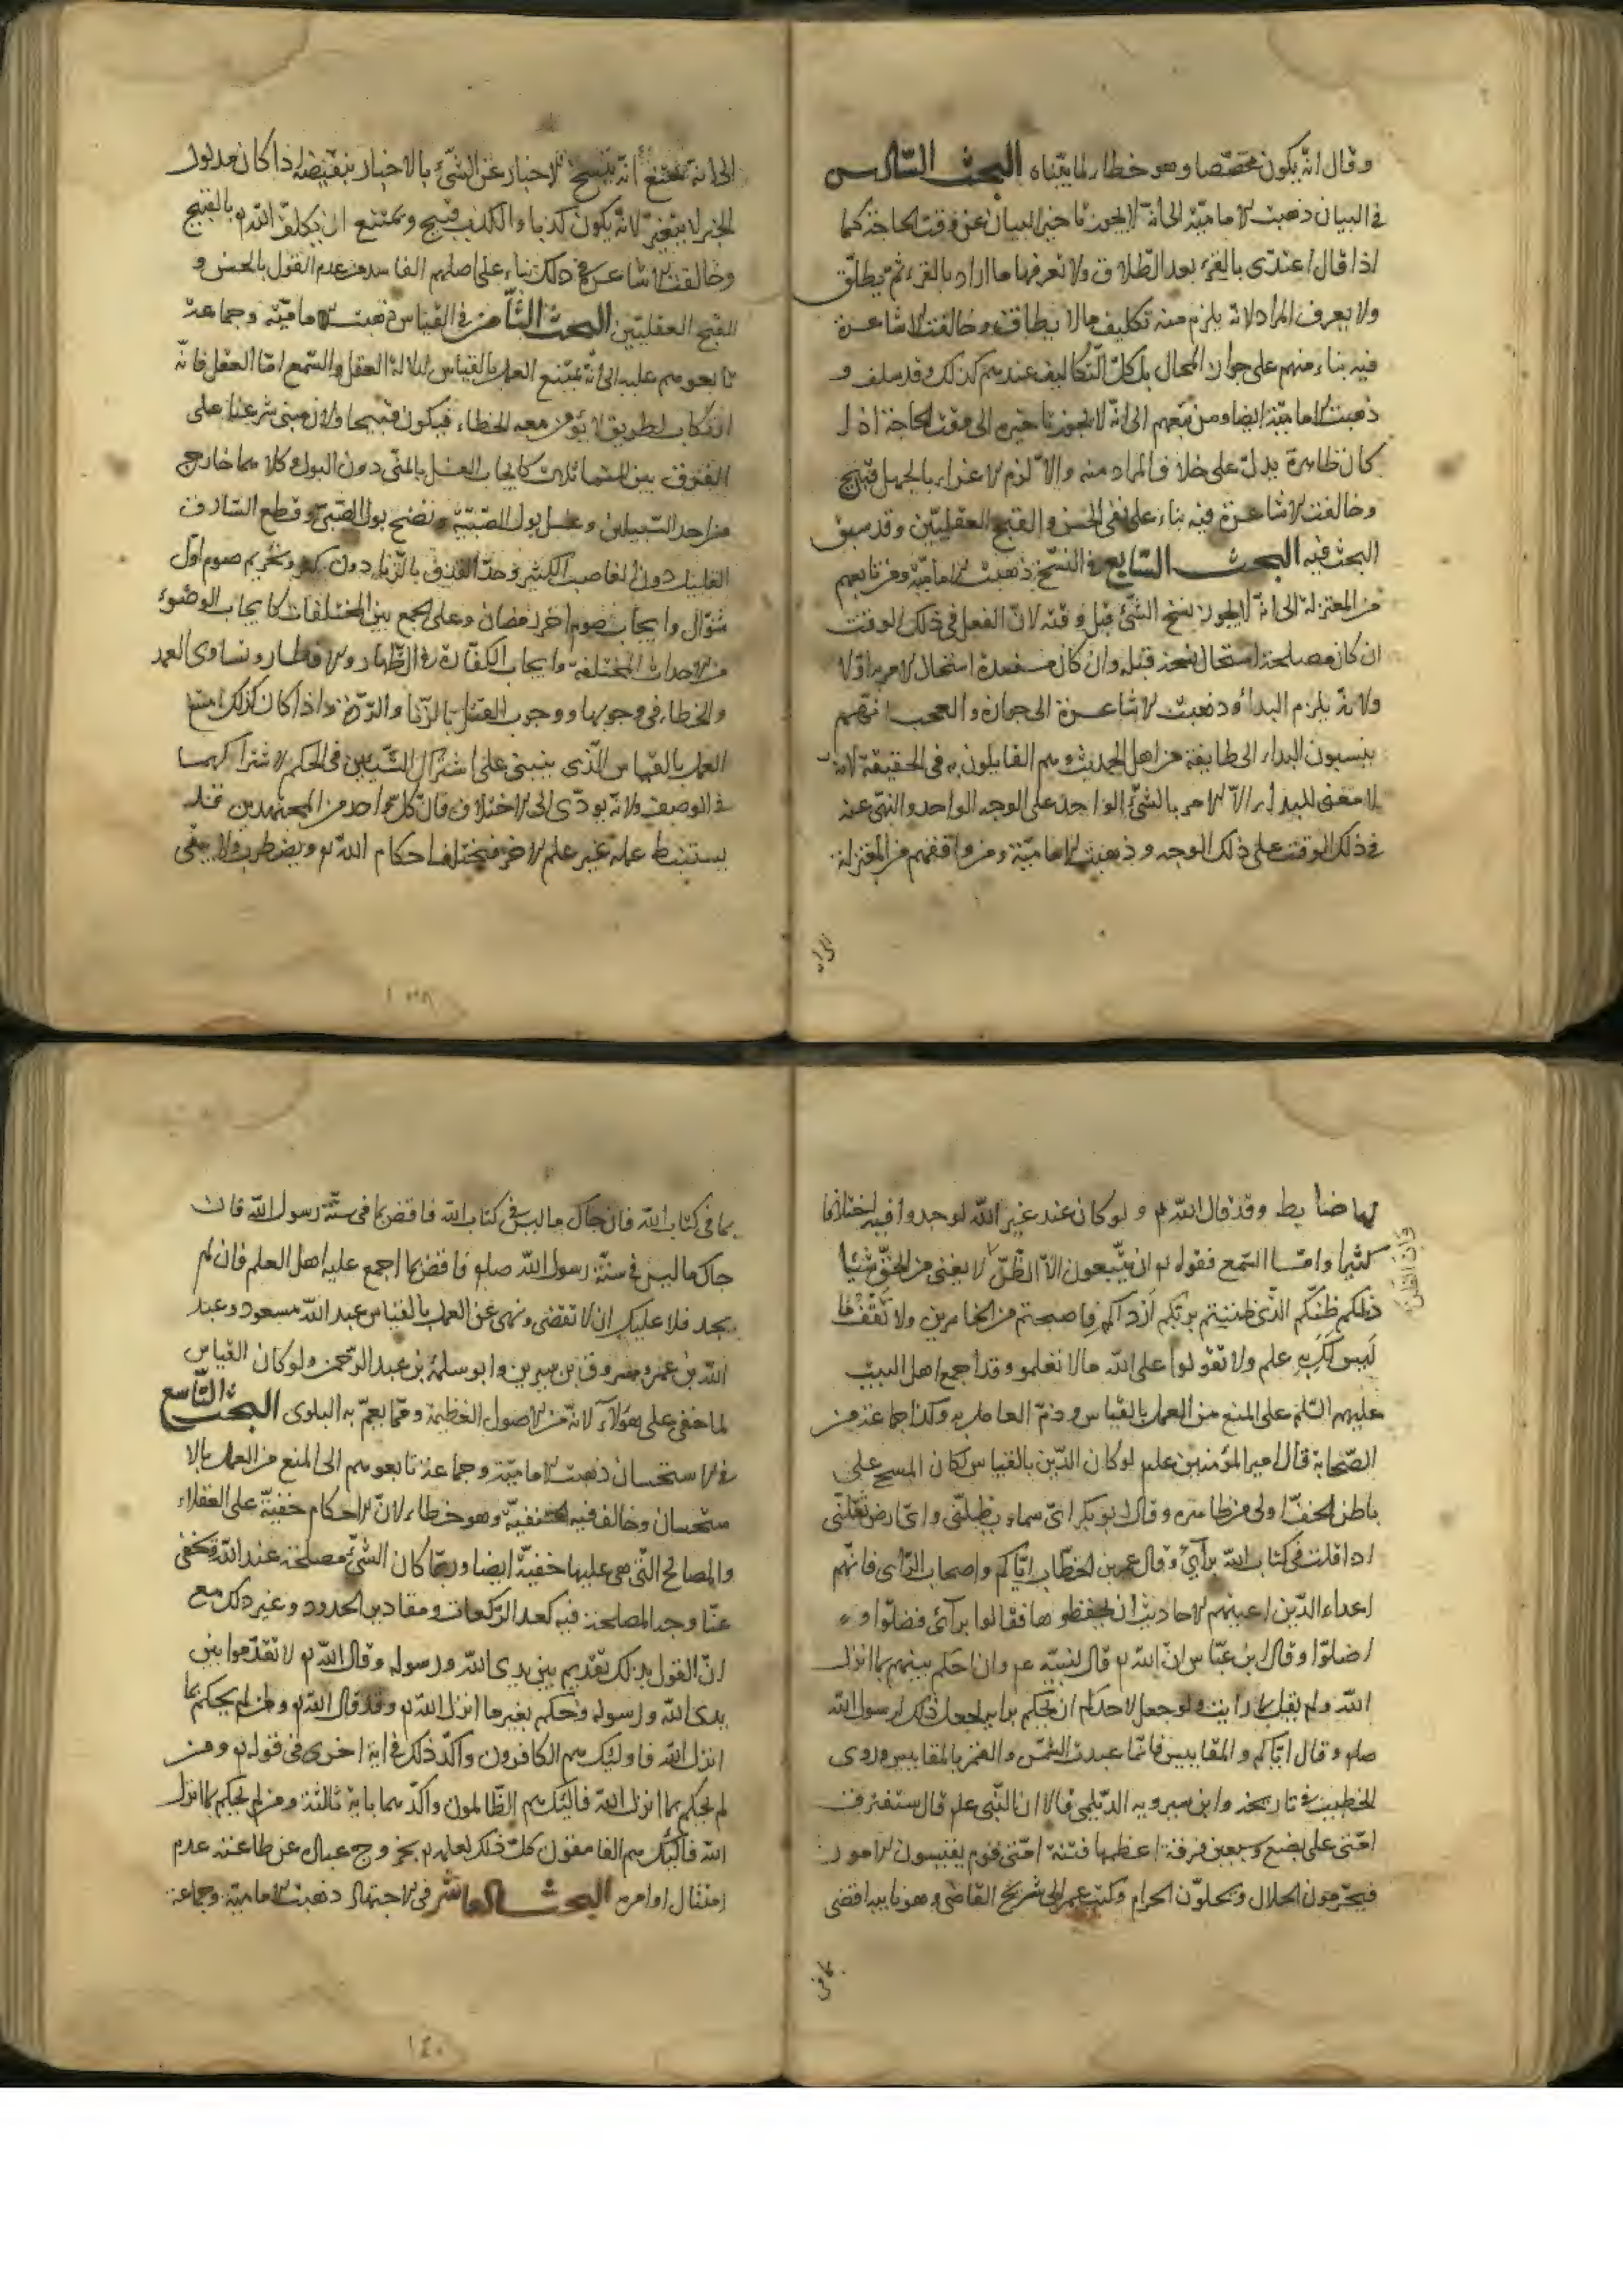 وقال انه يكون مخصصا وهو خطاء لما بيناه البحث السادس
في البيان ذهبت الامامية الى انه لا يجوز تاخير البيان عن وقت الحاجة كما
اذا قال اعتدى بالقرء بعد الطلاق ولا تعرفها ما اراد بالقرء ثم يطلق
ولا يعرف المراد لانه يلزم منه تكليف ما لا يطاق وخالفت الاشاعرة
فيه بناء منهم على جواز المحال بل كل التكاليف عندهم كذلك وقد سلف و
ذهبت الامامية ايضا ومن تبعهم الى انه لا يجوز تاخيره الى وقت الحاجة اذا
كان ظاهره يدل على خلاف المراد منه والا لزم الاغراء بالجهل قبيح
وخالفت الاشاعرة فيه بناء على نفى الحسن والقبح العقليين وقد سبق
البحث فيه البحث السابع في النسخ ذهبت الامامية ومن تابعهم
من المعتزلة الى انه لا يجوز نسخ الشئ قبل وقته لان الفعل في ذلك الوقت
ان كان مصلحة استحال نسخه قبله وان كان مفسدة استحال الامر به اولا
ولانه يلزم البداء وذهبت الاشاعرة الى جوازه والعجب انهم
ينسبون البداء الى طايفة من اهل الحديث وهم القايلون به في الحقيقة لانه
لا معنى للبداء الا الامر بالشئ الواحد على الوجه الواحد والنهى عنه
في ذلك الوقت على ذلك الوجه وذهبت الامامية ومن وافقهم من المعتزلة
الى انه
الى انه يمتنع انه ينسخ الاخبار عن الشئ بالاخبار بنقيضه اذا كان مدلول
الخبر لا يتغير لانه يكون كذبا والكذب قبيح ويمتنع ان يكلف الله تع بالقبيح
وخالفت الاشاعرة في ذلك بناء على اصلهم الفاسد من عدم القول بالحسن و
القبح العقليين البحث الثامن في القياس ذهبت الامامية وجماعة
تابعوهم عليه الى انه يمتنع العمل بالقياس لدلالة العقل والسمع اما العقل فانه
ارتكاب لطريق لا يؤمن معه الخطاء فيكون قبيحا ولان مبنى شرعنا على
الفرق بين المتماثلات كايجاب الغسل بالمنى دون البول وكلاهما خارج
من احد السبيلين وغسل بول الصبية ونضح بول الصبى وقطع السارق
القليل دون الغاصب الكثير وحد القذف بالزنا دون الكفر وتحريم صوم اول
شوال وايجاب صوم اخر رمضان وعلى الجمع بين المختلفات كايجاب الوضوء
من الاحداث المختلفة وايجاب الكفارة في الظهار والافطار وتساوى العمد
والخطاء في وجوبها ووجوب القتل بالزنا والردة واذا كان كذلك امتنع
العمل بالقياس الذى ينبنى على اشتراك الشيئين في الحكم لاشتراكهما
في الوصف ولانه يودى الى الاختلاف فان كل واحد من المجتهدين قد
يستنبط علة غير علة الاخر فيختلف احكام الله تع ويضطرب ولا يبقى
١٣٨
لها ضابط وقد قال الله تع ولو كان عند غير الله لوجدوا فيه اختلافا
كثيرا واما السمع فقوله تع ان يتبعون الا الظن لا يغنى من الحق شيئا
وان الظن
ذلكم ظنكم الذى ظننتم بربكم ارداكم فاصبحتم من الخاسرين ولا تقف ما
ليس لك به علم ولا تقولوا على الله ما لا تعلمو وقد اجمع اهل البيت
عليهم السلم على المنع من العمل بالقياس وذم العامل به وكذا جماعة من
الصحابة قال امير المؤمنين علم لو كان الدين بالقياس لكان المسح على
باطن الخف اولى من ظاهره وقال ابو بكر اى سماء يظلنى واى ارض تقلنى
اذا قلت في كتاب الله برأيى وقال عمر بن الخطاب اياكم واصحاب الراى فانهم
اعداء الدين اعيتهم الاحاديث ان يحفظوها فقالوا برأى فضلوا و
اضلوا وقال ابن عباس ان الله تع قال لنبيه عم وان احكم بينهم بما انزل
الله ولم يقل بما رايت ولو جعل لاحدكم ان يحكم برايه لجعل ذلك لرسول الله
صلع وقال اياكم والمقاييس فانما عبدت الشمس والقمر بالمقاييس وروى
الخطيب في تاريخه وابن سيرويه الديلمى قالا ان النبى علم قال ستفترق
امتى على بضع وسبعين فرقة اعظمها فتنة امتى قوم يقيسون الامور
فيحرمون الحلال ويحلون الحرام وكتب عمر الى شريح القاضى وهو نايبه اقضى
بما في
بما في كتاب الله فان جاك ما ليس في كتاب الله فاقض بما في سنة رسول الله فان
جاك ما ليس في سنة رسول الله صلع فاقض بما اجمع عليه اهل العلم فان لم
يجد فلا عليك ان لا تقضى ونهى عن العمل بالقياس عبد الله مسعود وعبد
الله بن عمر ومسروق بن سيرين وابو سلمة بن عبد الرحمن ولو كان القياس
لما خفى على هؤلآء لانه من الاصول العظيمة ومما يعم به البلوى البحث التاسع
في الاستحسان ذهبت الامامية وجماعة تابعوهم الى المنع من العمل بالا
ستحسان وخالف فيه الحنفية وهو خطاء لان الاحكام خفية على العقلاء
والمصالح التى هى عليها خفية ايضا وربما كان الشئ مصلحة عند الله وتخفى
عنا وجه المصلحة فيه كعدد الركعات ومقادير الحدود وغير ذلك مع
ان القول بذلك تقديم بين يدى الله ورسوله وقال الله تع لا تقدموا بين
يدى الله ورسوله وحكم بغير ما انزل الله تع وقد قال الله تع ومن لم يحكم بما
انزل الله فاولئك هم الكافرون واكد ذلك في اية اخرى في قوله تع ومن
لم يحكم بما انزل الله فالئك هم الظالمون واكدهما باية ثالثة ومن لم يحكم بما انزل
الله فالئك هم الفاسقون كل ذلك لعلمه تع بخروج عباده عن طاعته عدم
امتثال اوامره البحث العاشر في الاجتهاد ذهبت الامامية وجماعة
١٤٠